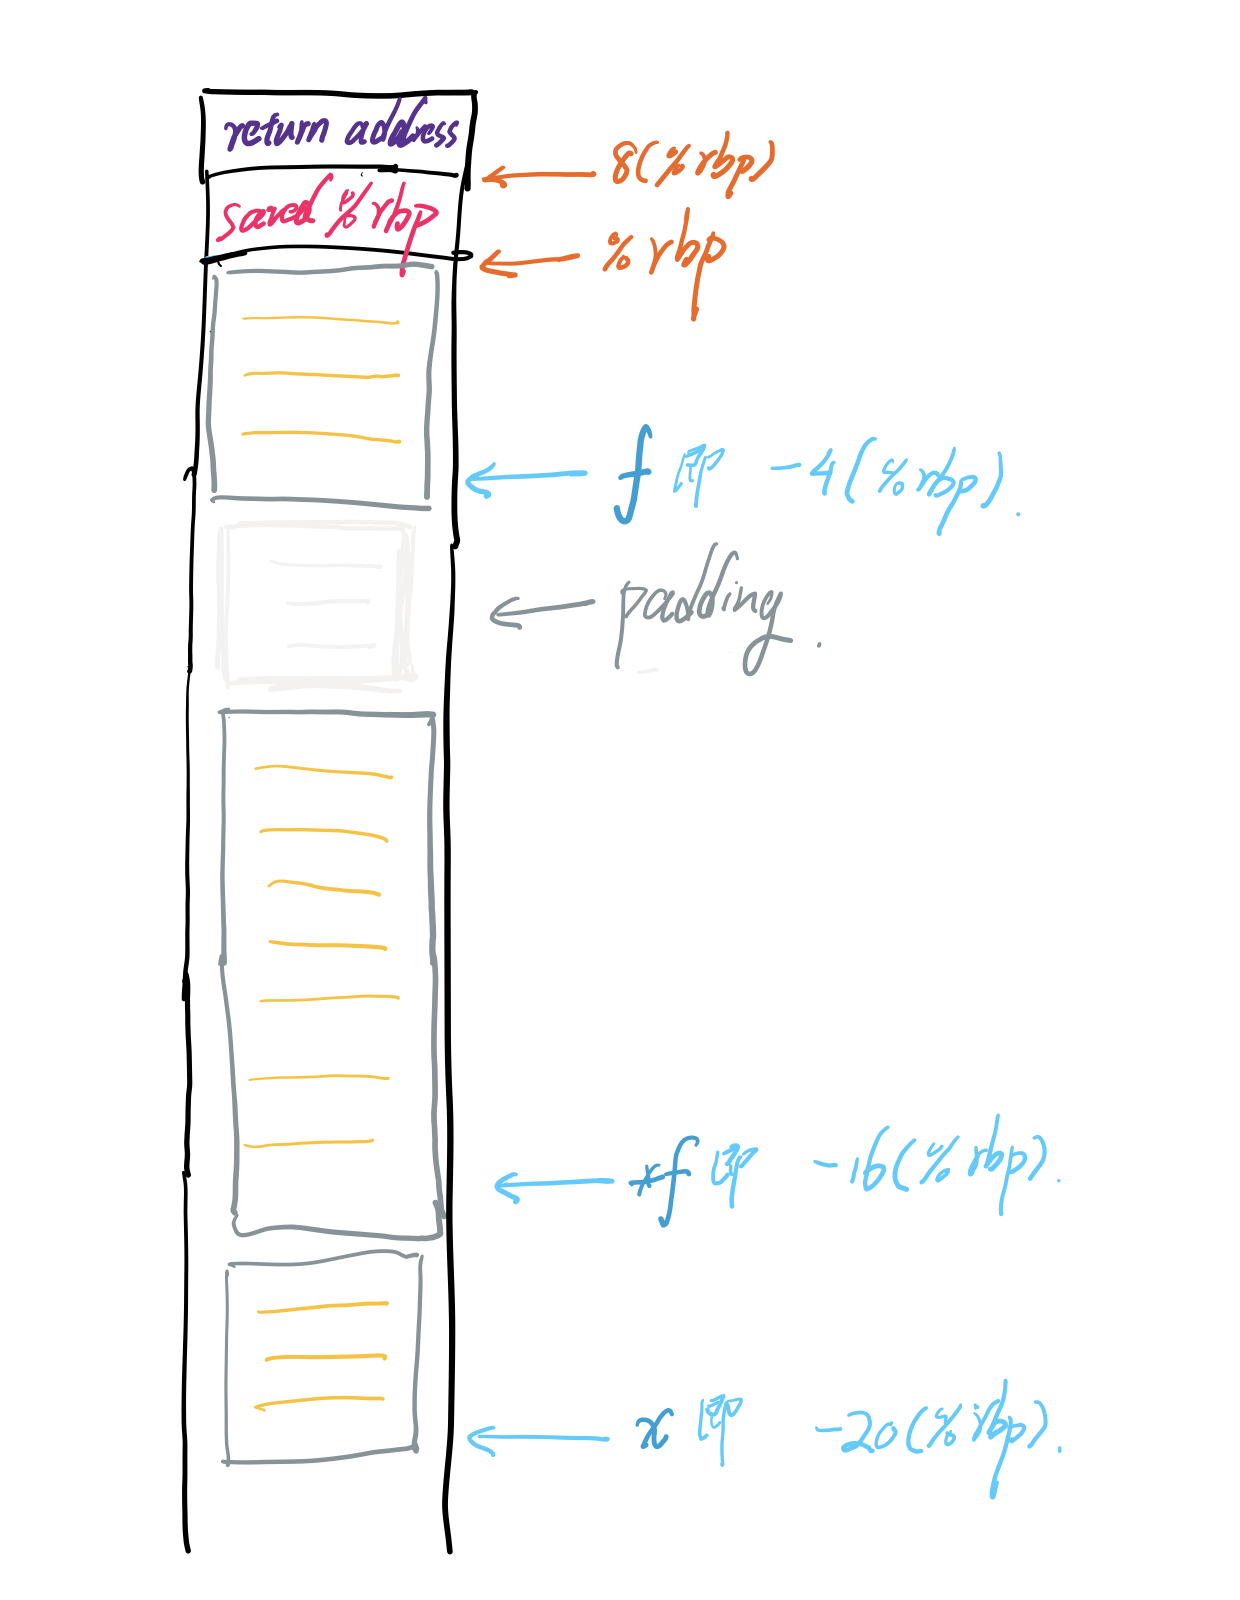 return address
8(%rbp)
saved %rbp
%rbp
f 即 -4(%rbp).
padding.
xf 即 -16(%rbp).
x 即 -20(%rbp).